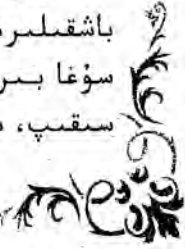 باشقىلىر
سۇغا بىر
سىقىپ،